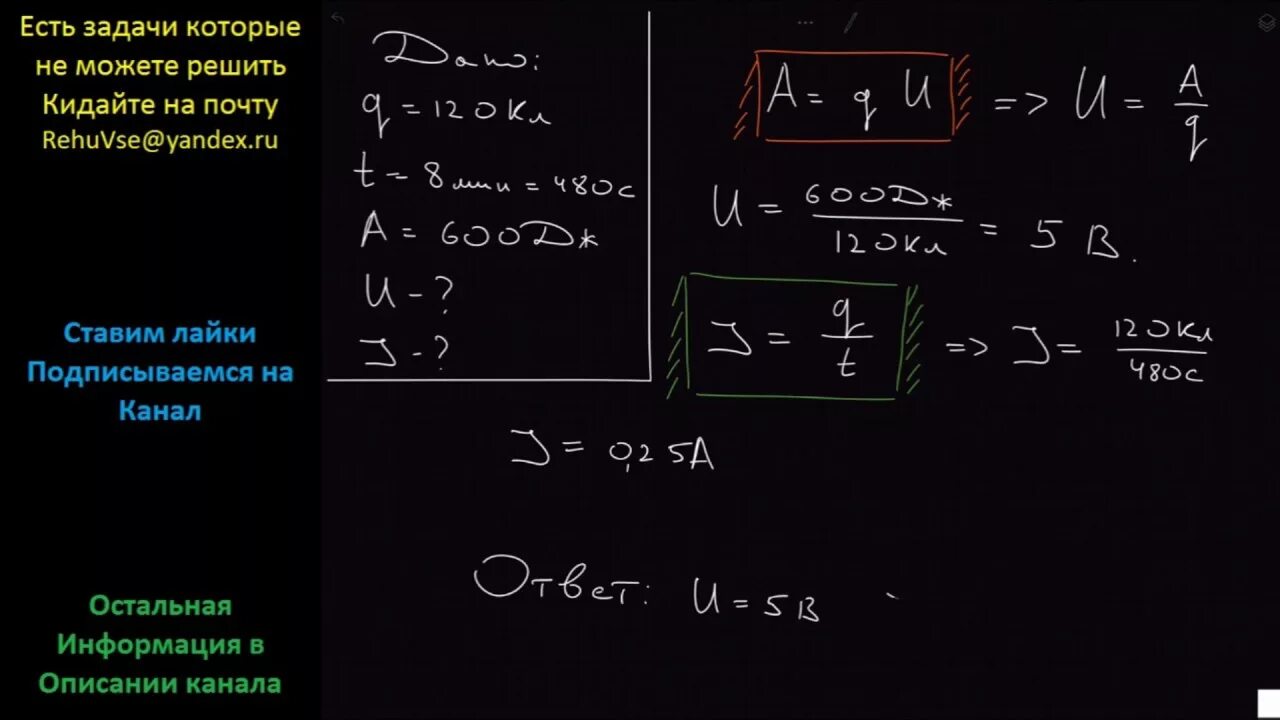 Есть задачи которые
не можете решить
Кидайте на почту
RehuVse@yandex.ru
Ставим лайки
Подписываемся на
Канал
Остальная
Информация в
Описании канала
Дано:
q = 120Кл
t = 8 мин = 480с
A = 600Дж
U - ?
J - ?
A = q U => U = A/q
U = 600Дж/120Кл = 5 В.
J = q/t => J = 120Кл/480с
J = 0,25А
Ответ: U = 5В